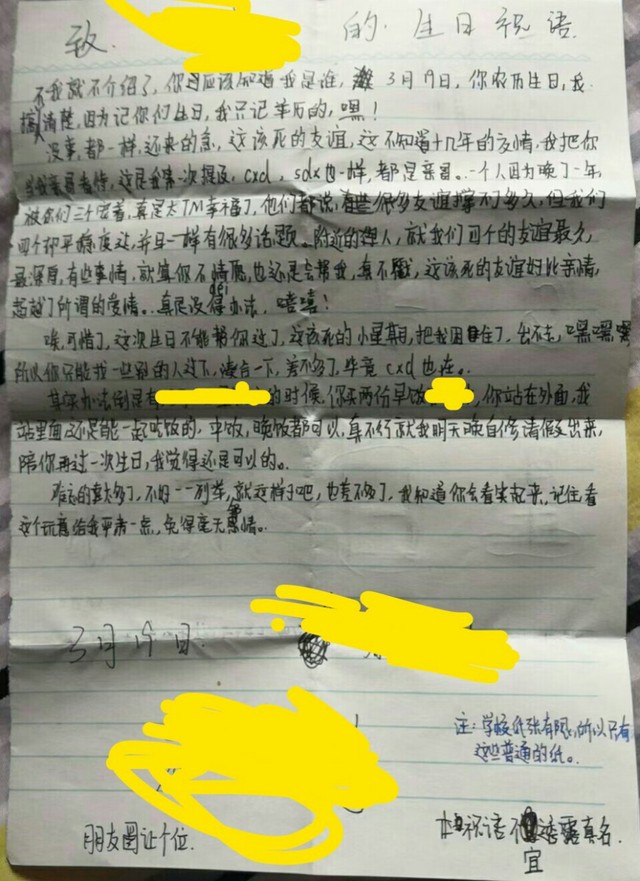 致 的生日祝语
我就不介绍了,你因应该知道我是谁, 3月19日,你农历生日,我
搞清楚,因为记你们生日,我只记羊历的,嘿!
没事,都一样,还来的急,这该死的友谊,这不知道十几年的友情,我把你
当我亲哥看待,这是我第一次提及,cxd,sdx也一样,都是亲哥。一个人因为晚了一年,
被你们三个宠着,真是太TM幸福了,他们都说,有些很多友谊撑不了多久,但我们
四个却平稳度过,并且一样有很多话题。附近的 人,就我们四个的友谊最久,
最深厚,有些事情,就算你不情愿,也还是会帮我,真不赖,这该死的友谊好比亲情,
超越了所谓的爱情。真是没得办法,嘻嘻!
唉,可惜了,这次生日不能帮你过了,这该死的小星期,把我困住了,出不去,嘿嘿嘿
所以你只能找一些别的人过下,凑合一下,差不多了,毕竟cxd也在。
其实办法倒是有 的时候,你买两份早饭 ,你站在外面,我
站里面还是能一起吃饭的,中饭,晚饭都可以,真不行就我明天晚自修请假出来,
陪你再过一次生日,我觉得还是可以的。
有 的 太多了,不好一一列举,就这样子吧,也差不多了,我知道你会看笑起来,记住,看
这个玩意给我严肃一点,免得毫无 情。
3月19日.
注:学校纸张有限,所以只有
这些普通的纸。
朋友圈让个位.
本祝语不宜透露真名.